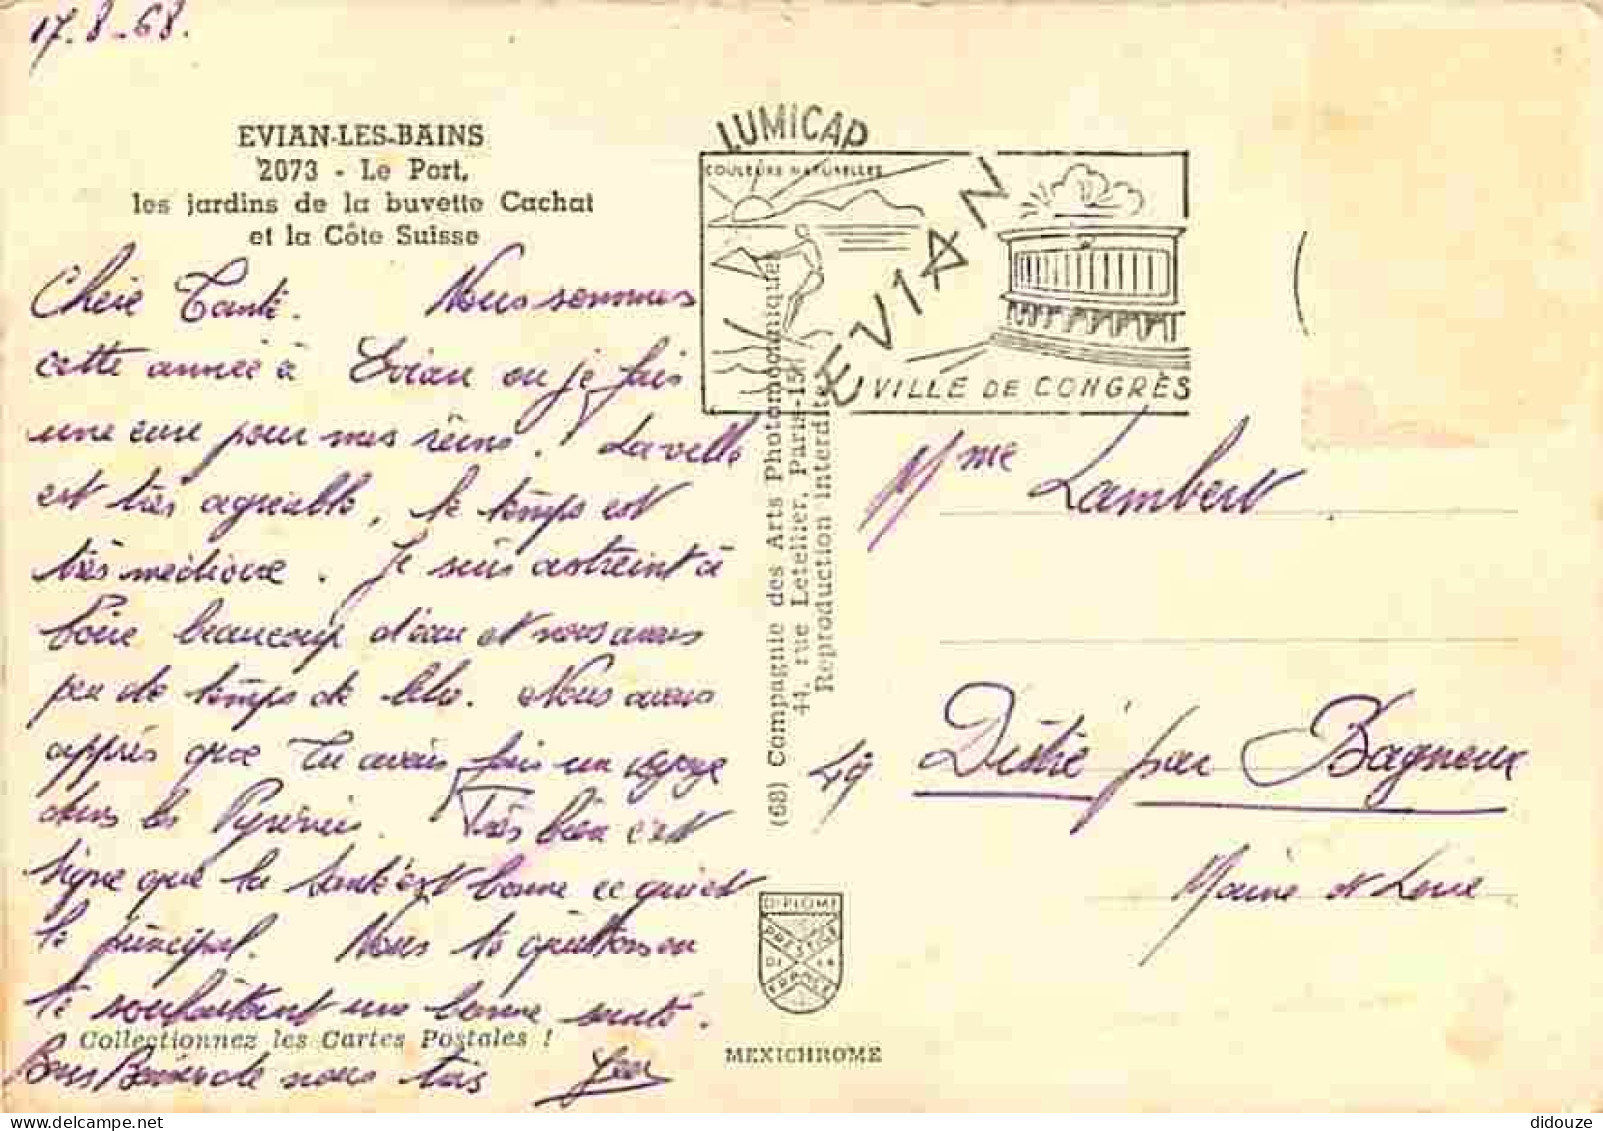 17.8-68.
EVIAN-LES-BAINS
2073 - Le Port,
les jardins de la buvette Cachat
et la Côte Suisse
LUMICAP
COULEURS NATURELLES
EVIAN
VILLE DE CONGRÈS
Chère Tante. Nous sommes
cette année à Evian ou je fais
une cure pour mes reins. La ville
est très agréable, le temps est
très médiocre. Je suis astreint à
boire beaucoup d'eau et nous avons
peu de temps de libre. Nous avons
appris que Tu avais fais un voyage
dans les Pyrénées. Très bien c'est
signe que la santé est bonne ce qui est
le principal. Nous te quittons en
te souhaitant une bonne santé.
Collectionnez les Cartes Postales !
Bons Baisers de nous tous Jean
(68) Compagnie des Arts Photomécaniques
44, rue Letellier, Paris-15e
Reproduction interdite
DIPLOME
PRESTIGE
DE LA
FRANCE
MEXICHROME
Mme Lambert
49 Distré par Bagneux
Maine et Loire
didouze